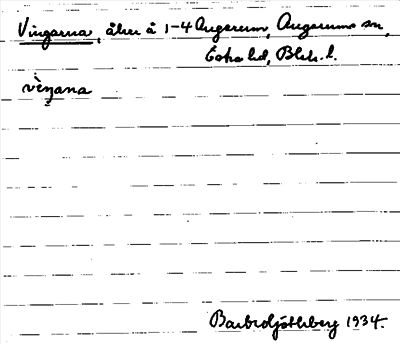 Vingarna, åker å 1-4 Augerum, Augerums sn,
Östra hd, Blek. l.
vèŋana
Barbro Ljöthberg 1934.